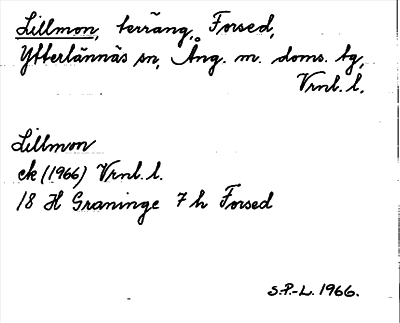 Lillmon, terräng, Forsed,
Ytterlännäs sn, Ång. m. doms. tg,
Vrnl. l.
Lillmon
ek (1966) Vrnl. l.
18 H Graninge 7 h Forsed
S.P.-L. 1966.